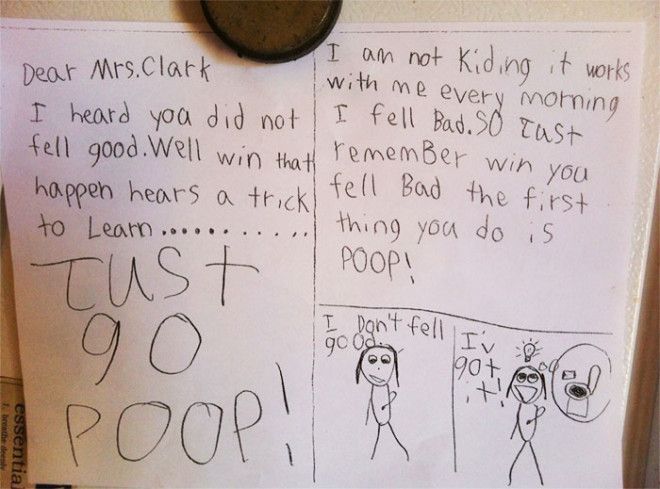 Dear Mrs.Clark
I heard you did not
fell good.Well win that
happen hears a trick
to Learn............
JUST
go
POOP!
I am not Kiding it works
with me every morning
I fell Bad.SO JUST
remember win you
fell Bad the first
thing you do is
POOP!
I Don't fell
good.
I'v
got
it!
essential
1. breathe deeply